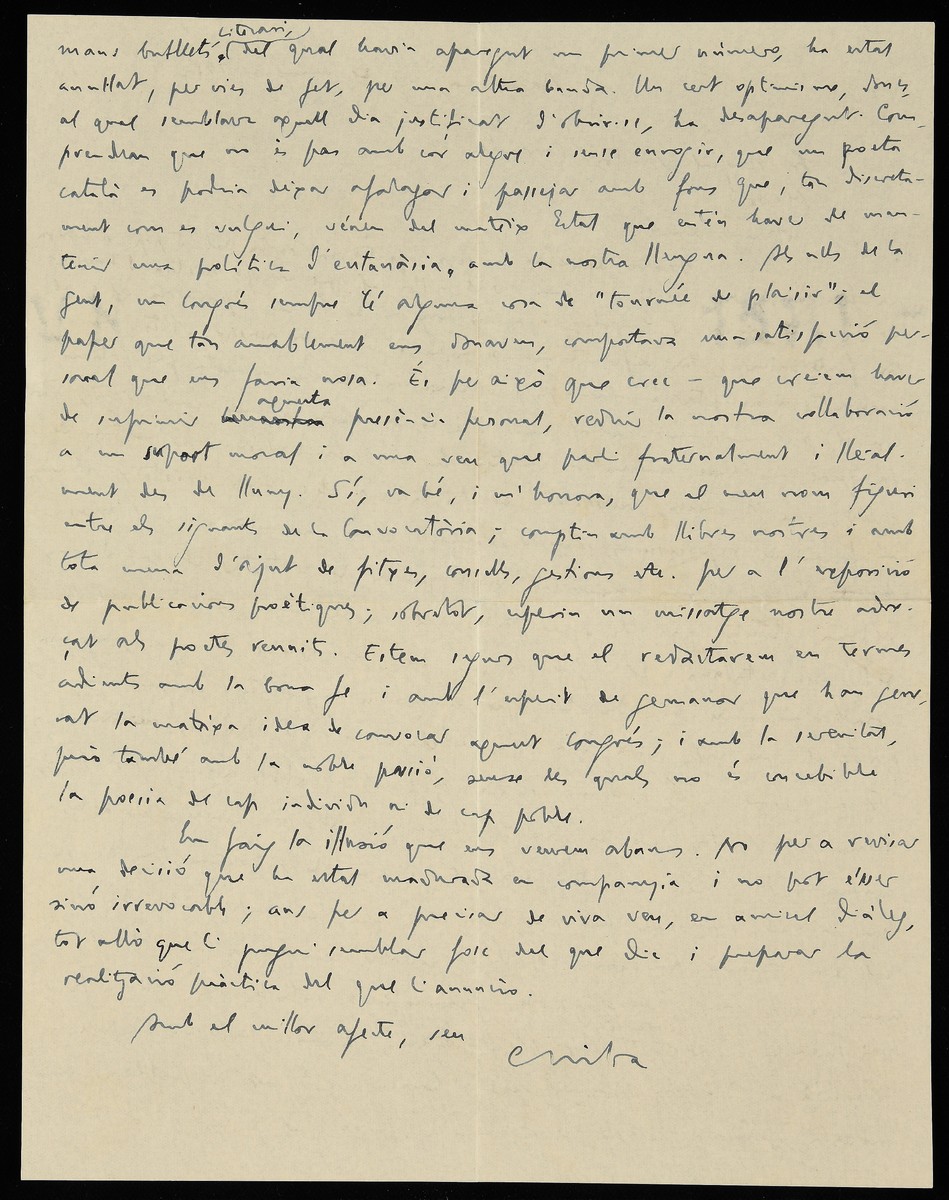 literari,
mans butlletí, del qual havia aparegut un primer número, ha estat
anul·lat, per vies de fet, per una altra banda. Un cert optimisme, doncs,
al qual semblava aquell dia justificat d'obrir-se, ha desaparegut. Com-
prendran que no és pas amb cor alegre i sense enrogir, que un poeta
català es podria deixar afalagar i passejar amb fons que, tan discreta-
ment com es vulgui, vénen del mateix Estat que entén haver de man-
tenir una política d'eutanàsia, amb la nostra llengua. Als ulls de la
gent, un Congrés sempre té alguna cosa de "tournée de plaisir"; el
paper que tan amablement ens donaven, comportava una satisfacció per-
sonal que ens faria nosa. És per això que crec – que creiem haver
aquesta
de suprimir presència personal, reduir la nostra col·laboració
a un suport moral i a una veu que parli fraternalment i lleial-
ment des de lluny. Sí, va bé, i m'honora, que el meu nom figuri
entre els signants de la Convocatòria; comptin amb llibres nostres i amb
tota mena d'ajut de fitxes, consells, gestions etc. per a l'exposició
de publicacions poètiques; sobretot, esperin un missatge nostre adre-
çat als poetes reunits. Estem segurs que el redactarem en termes
adients amb la bona fe i amb l'esperit de germanor que han gene-
rat la mateixa idea de convocar aquest Congrés; i amb la serenitat,
però també amb la noble passió, sense les quals no és concebible
la poesia de cap individu ni de cap poble.
Em faig la il·lusió que ens veurem abans. No per a revisar
una decisió que ha estat madurada en companyia i no pot ésser
sinó irrevocable; ans per a precisar de viva veu, en amical diàleg,
tot allò que li pugui semblar fosc del que dic i preparar la
realització pràctica del que li anuncio.
Amb el millor afecte, seu
C Riba